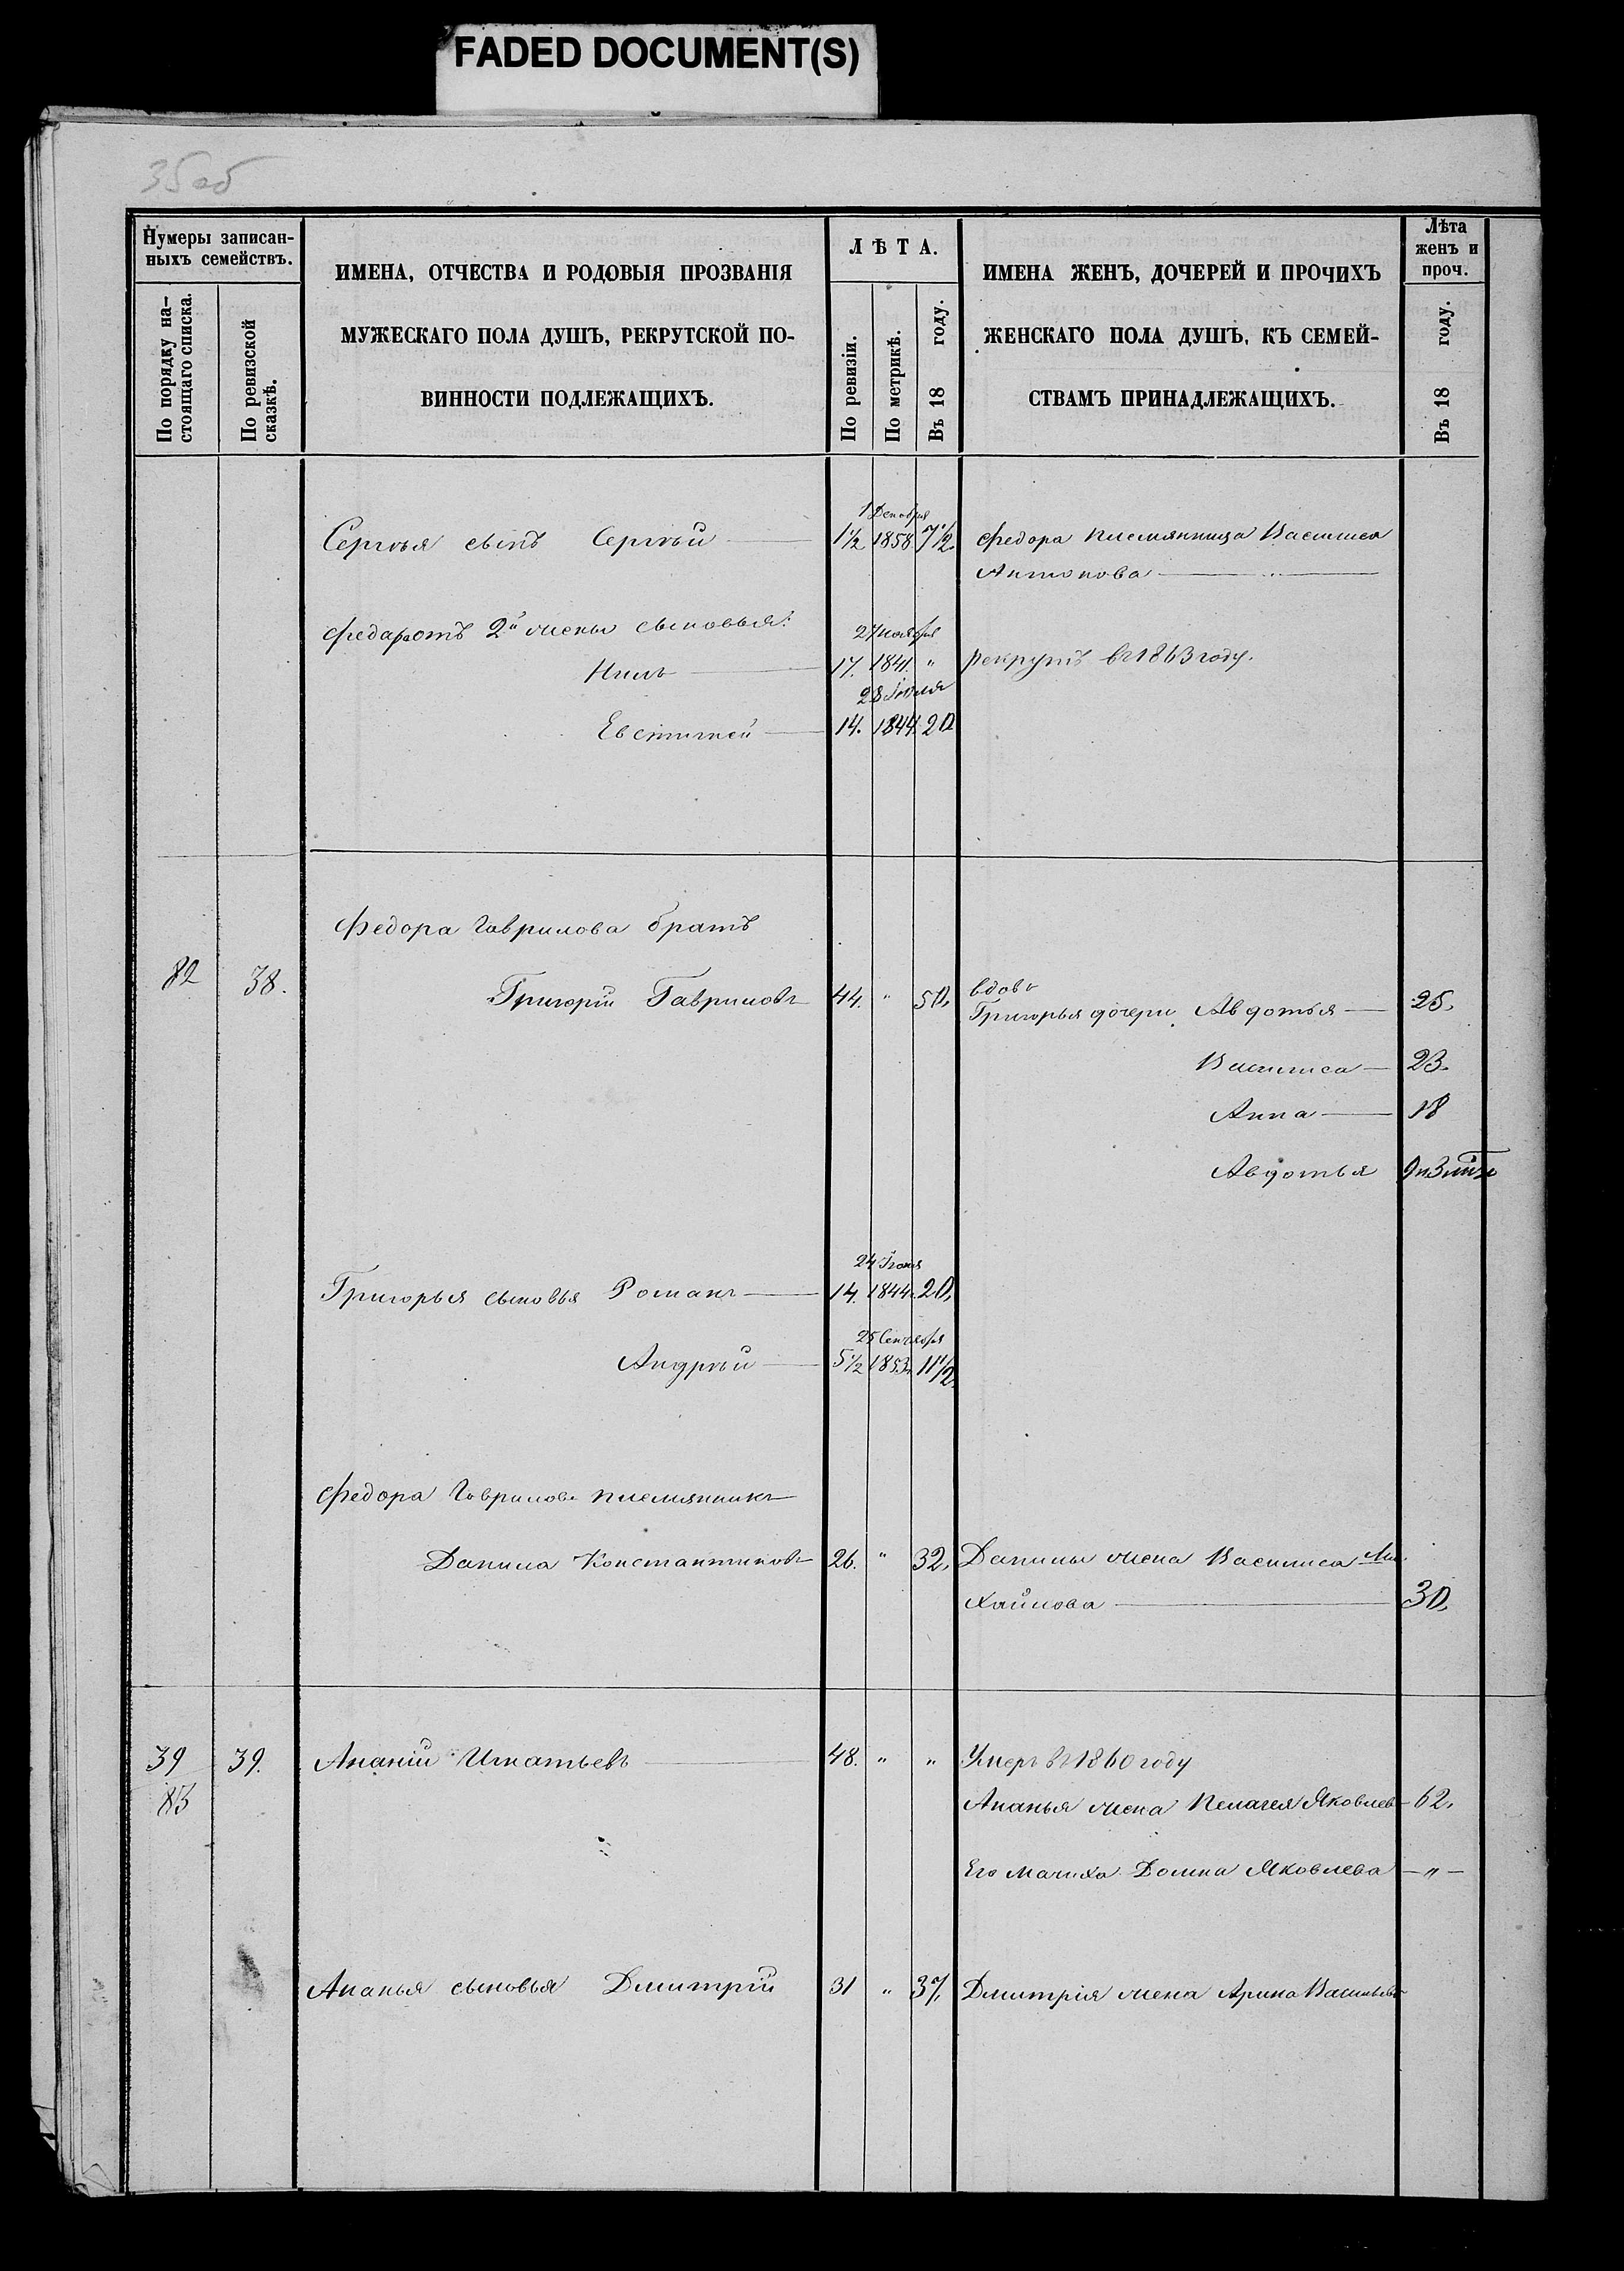 FADED DOCUMENT(S)
35 об
Нумеры записан-
ныхъ семействъ.
По порядку на-
стоящаго списка.
По ревизской
сказкѣ.
ИМЕНА, ОТЧЕСТВА И РОДОВЫЯ ПРОЗВАНІЯ
МУЖЕСКАГО ПОЛА ДУШЪ, РЕКРУТСКОЙ ПО-
ВИННОСТИ ПОДЛЕЖАЩИХЪ.
ЛѢТА.
По ревизіи.
По метрикѣ.
Въ 18 году.
ИМЕНА ЖЕНЪ, ДОЧЕРЕЙ И ПРОЧИХЪ
ЖЕНСКАГО ПОЛА ДУШЪ, КЪ СЕМЕЙ-
СТВАМЪ ПРИНАДЛЕЖАЩИХЪ.
Лѣта
женъ и
проч.
Въ 18 году.
1 Декабря
Сергѣя сынъ Сергѣй 1½ 1858 7½. Федора племянница Василиса
Антонова
Федара отъ 2й жены сыновья: 27 ноября
Нилъ 17. 1841. " рекрутъ въ 1863 году.
28 Іюля
Евстигней 14. 1844. 20
Федора Гаврилова братъ
82 38. Григорій Гавриловъ 44. " 50. вдовъ
Григорья дочери Авдотья 25.
Василиса 23.
Анна 18
Авдотья
24 Іюля
Григорья сыновья Романъ 14. 1844. 20.
25 Сентября
Андрѣй 5½ 1853. 11½.
Федора Гаврилова племянникъ
Данила Константиновъ 26. " 32. Данилы жена Василиса Ми-
хайлова 30.
39 39. Ананій Игнатьевъ 48. " " Умеръ въ 1860 году
83 Ананья жена Пелагея Яковлев 62.
Его мачиха Домна Яковлева "
Ананья сыновья Дмитрій 31 " 37. Дмитрія жена Арина Васильева